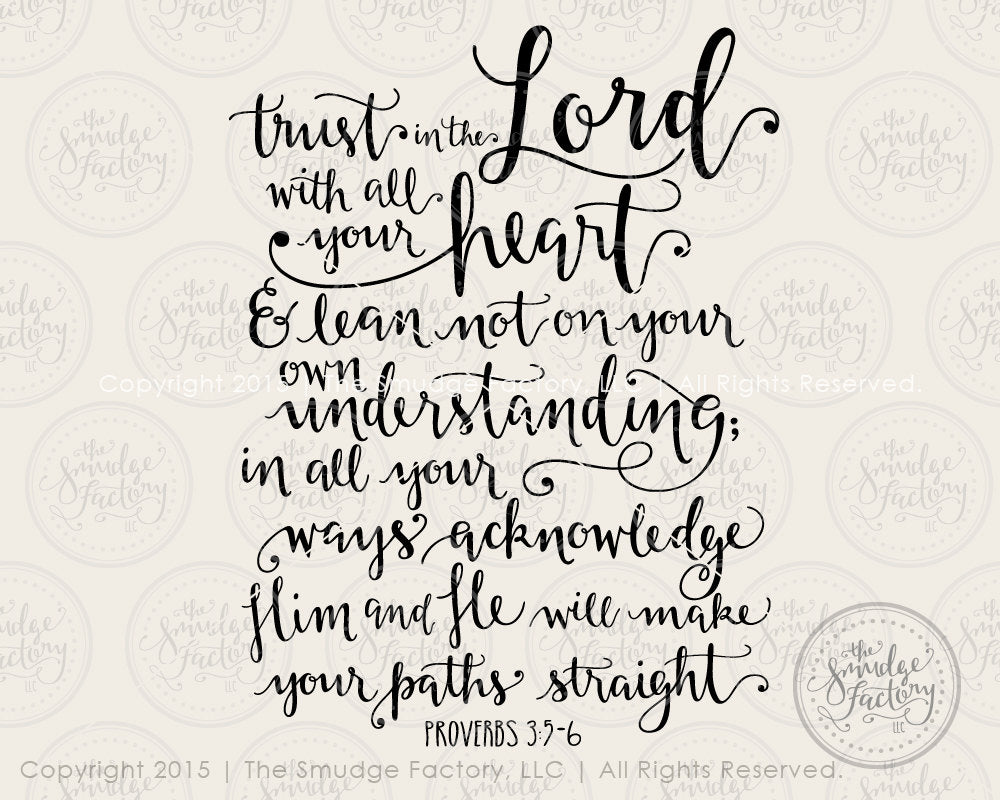 trust in the Lord
with all
your heart
& lean not on your
own
understanding;
in all your
ways acknowledge
Him and He will make
your paths straight
PROVERBS 3:5-6
Copyright 2015 | The Smudge Factory, LLC | All Rights Reserved.
the
Smudge
Factory
LLC
Copyright 2015 | The Smudge Factory, LLC | All Rights Reserved.